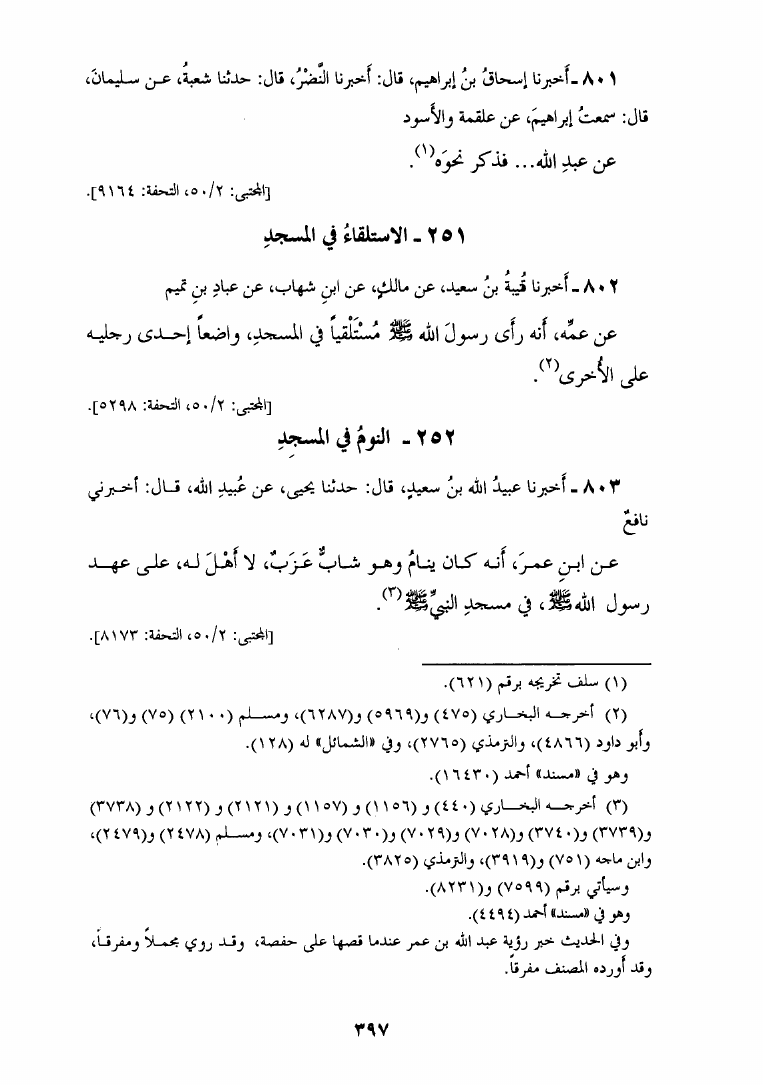 ٨٠١ ـ أَخبرنا إسحاقُ بنُ إبراهيم، قال: أَخبرنا النَّضْرُ، قال: حدثنا شعبةُ، عـن سـليمانَ،
قال: سمعتُ إبراهيمَ، عن علقمة والأَسود
عن عبدِ الله... فذكر نحوَه(١).
[المجتبى: ٥٠/٢، التحفة: ٩١٦٤].
٢٥١ ـ الاستلقاءُ في المسجدِ
٨٠٢ ـ أَخبرنا قُيبةُ بنُ سعيد، عن مالكٍ، عن ابنِ شهاب، عن عبادِ بنِ تميم
عن عمِّه، أَنه رأَى رسولَ الله ﷺ مُسْتَلْقياً في المسجدِ، واضعاً إحـدى رجليـه
على الأُخرى(٢).
[المجتبى: ٥٠/٢، التحفة: ٥٢٩٨].
٢٥٢ ـ النومُ في المسجدِ
٨٠٣ ـ أَخبرنا عبيدُ الله بنُ سعيدٍ، قال: حدثنا يحيى، عن عُبيدِ الله، قـال: أخـبرني
نافعٌ
عـن ابـنِ عمـرَ، أَنـه كـان ينـامُ وهـو شـابٌّ عَـزَبٌ، لا أَهْـلَ لـه، علـى عهـد
رسول الله ﷺ، في مسجدِ النبيِّ ﷺ(٣).
[المجتبى: ٥٠/٢، التحفة: ٨١٧٣].
(١) سلف تخريجه برقم (٦٢١).
(٢) أخرجـه البخـاري (٤٧٥) و(٥٩٦٩) و(٦٢٨٧)، ومسـلم (٢١٠٠) (٧٥) و(٧٦)،
وأبو داود (٤٨٦٦)، والترمذي (٢٧٦٥)، وفي «الشمائل» له (١٢٨).
وهو في «مسند» أحمد (١٦٤٣٠).
(٣) أخرجـه البخـاري (٤٤٠) و (١١٥٦) و (١١٥٧) و (٢١٢١) و (٢١٢٢) و (٣٧٣٨)
و(٣٧٣٩) و(٣٧٤٠) و(٧٠٢٨) و(٧٠٢٩) و(٧٠٣٠) و(٧٠٣١)، ومسـلم (٢٤٧٨) و(٢٤٧٩)،
وابن ماجه (٧٥١) و(٣٩١٩)، والترمذي (٣٨٢٥).
وسيأتي برقم (٧٥٩٩) و(٨٢٣١).
وهو في «مسند» أحمد (٤٤٩٤).
وفي الحديث خبر رؤية عبد الله بن عمر عندما قصها على حفصة، وقـد روي مجمـلاً ومفرقـاً،
وقد أورده المصنف مفرقاً.
٣٩٧